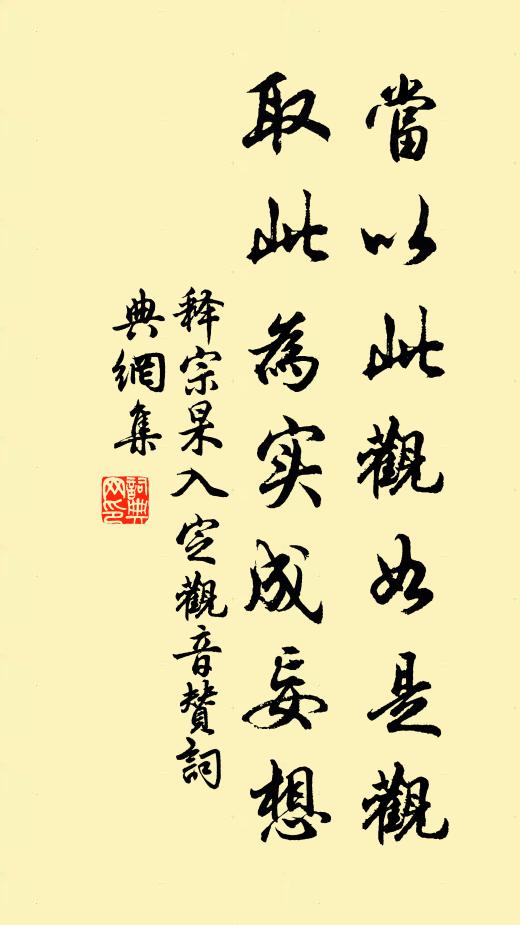 當以此觀如是觀
取此為实成妄想
释宗杲入定觀音賛詞
典網集
詞典网印